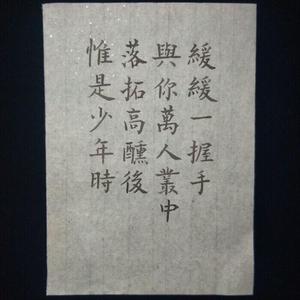 緩緩一握手
與你萬人叢中
落拓高醺後
惟是少年時